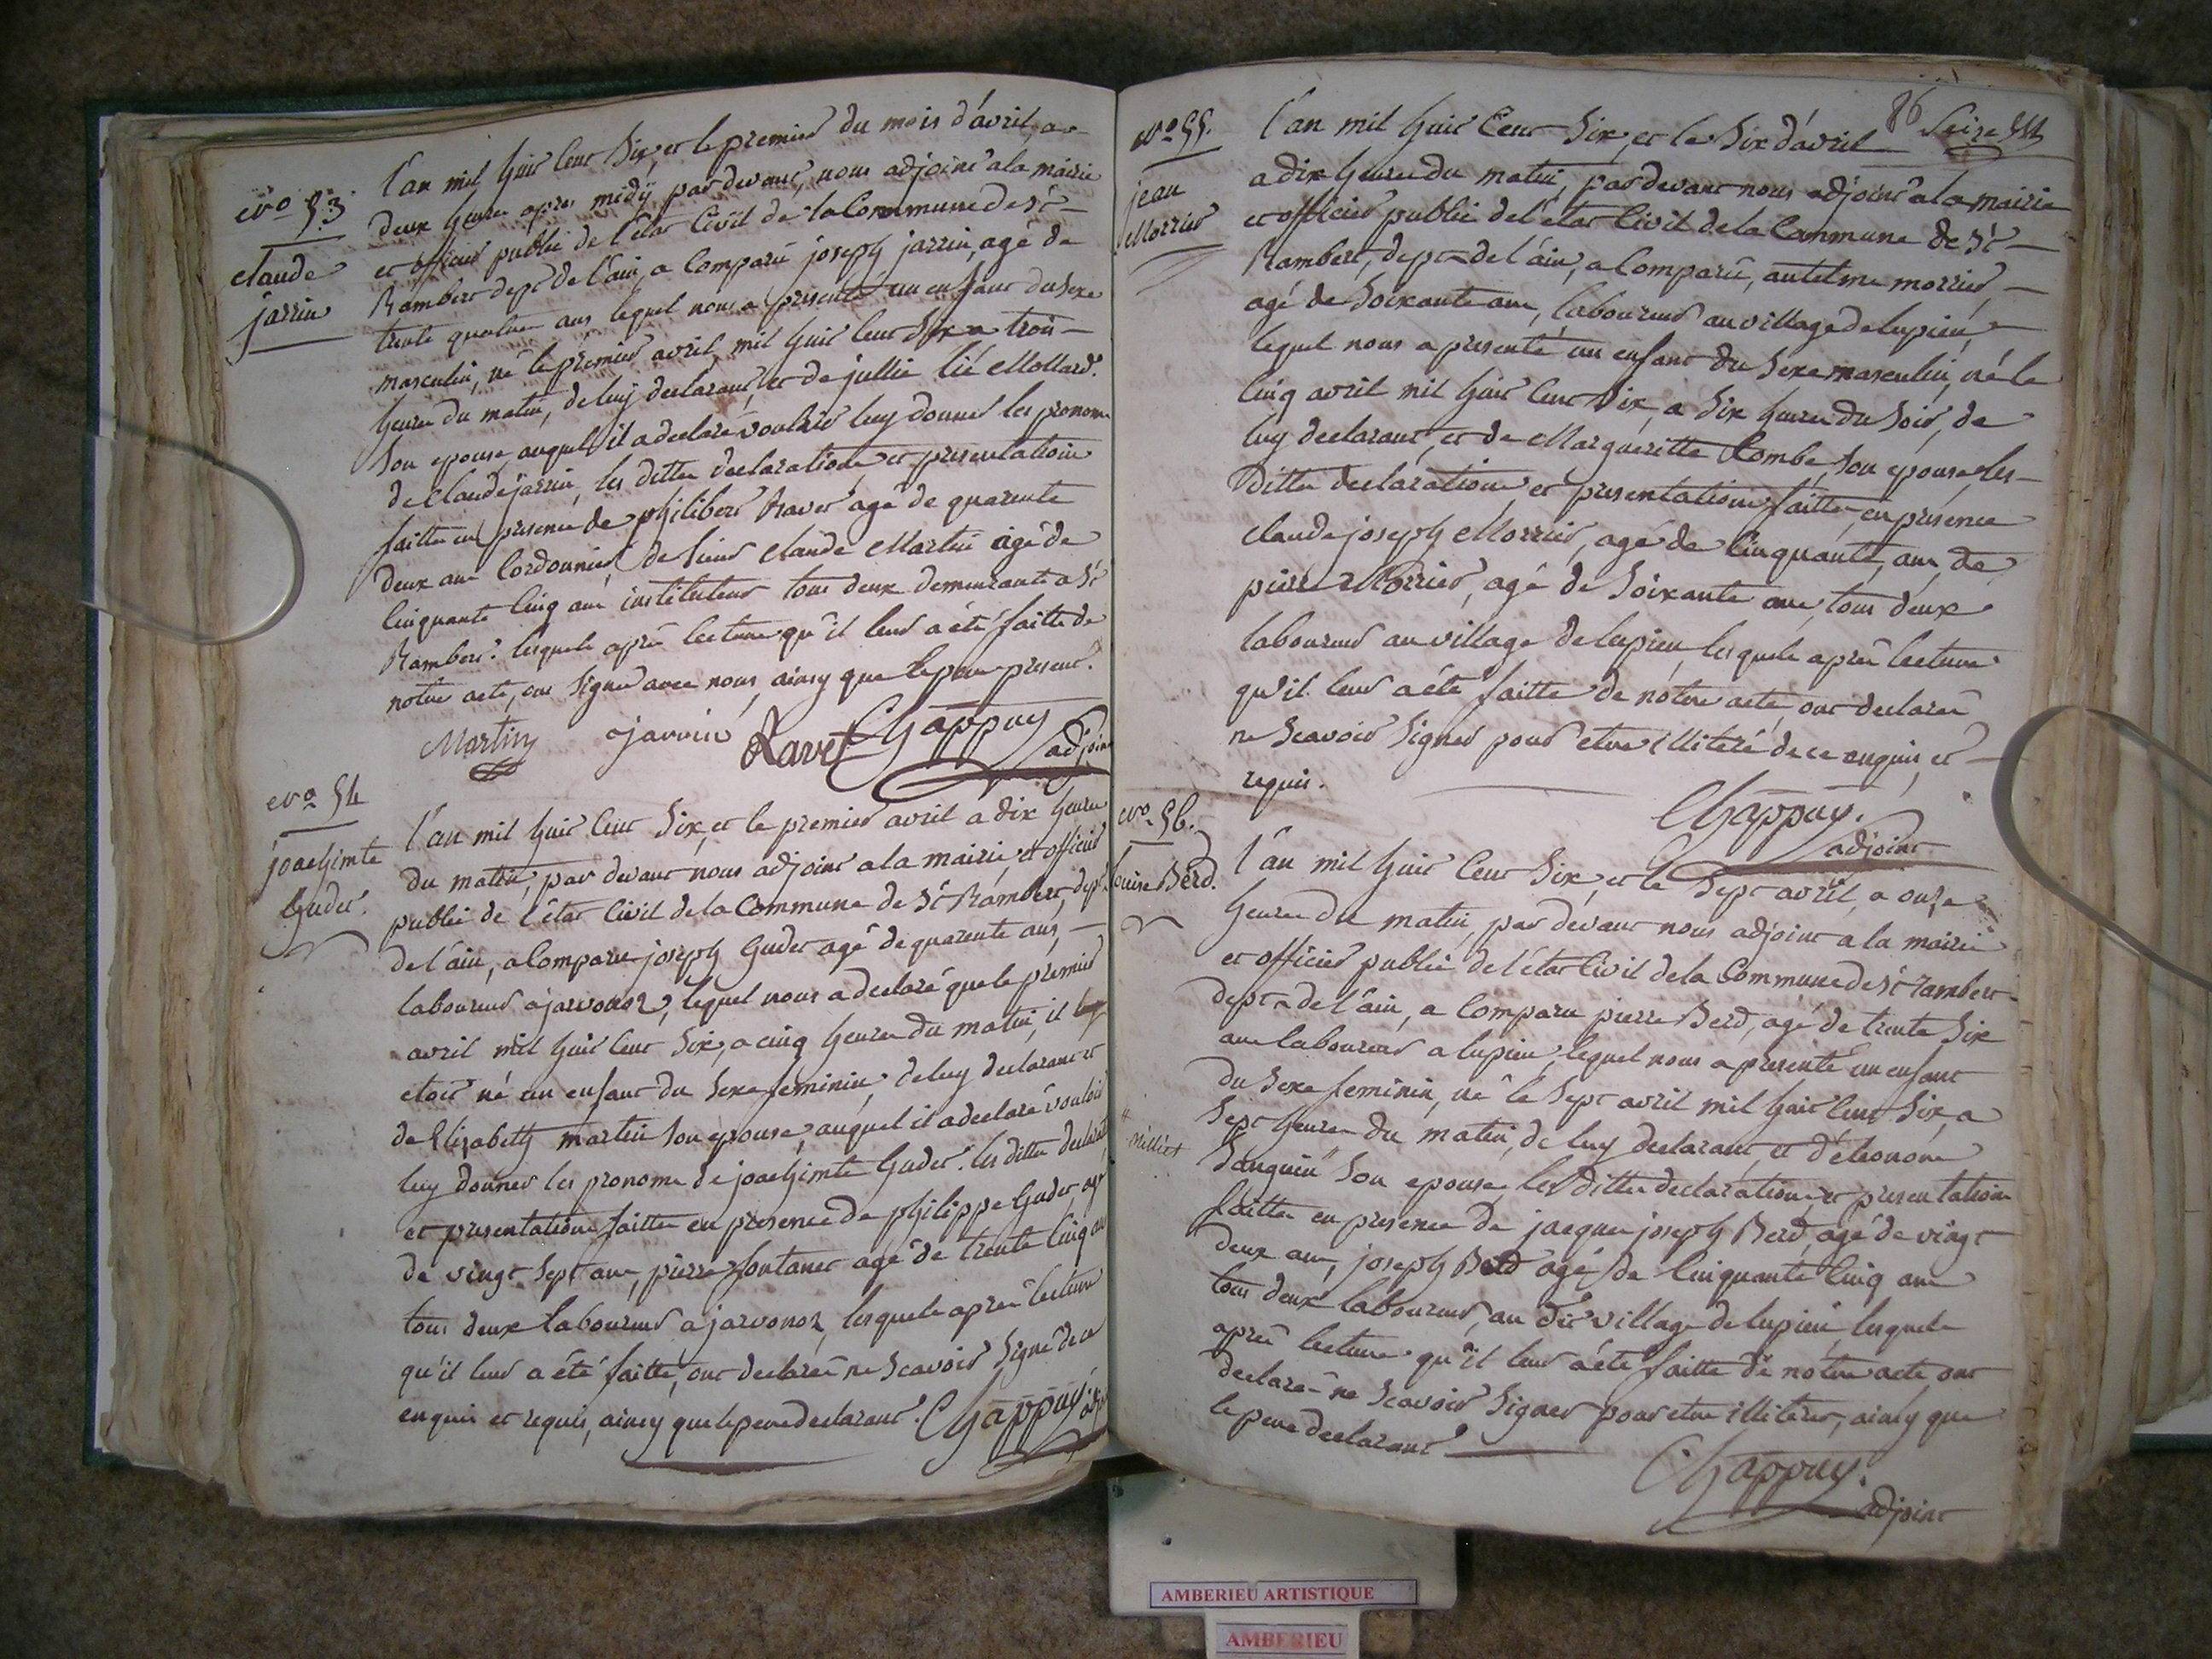 No 53
claude
jarrin
l'an mil huit cent six, et le premier du mois d'avril, a
deux heures apres midÿ pardevant, nous adjoint a la mairie
et officier public de l'état Civil de la Commune de St
Rambert dept de l'ain, a Comparu joseph jarrin, agé de
trente quatre ans lequel nous a presenté un enfant du sexe
masculin, né le premier avril, mil huit cent six a trois
heures du matin, de luy declarant, et de jullie lié Mollard.
son epouse, auquel il a declaré vouloir luy donner les pronoms
de Claude jarrin, les dittes declarations et presentations
faittes en presence de philibert Ravet agé de quarente
deux ans Cordonnier, de sieur Claude Martin agé de
Cinquante Cinq ans instituteur tous deux demeurants a St
Rambert. lesquels aprés lecture qu'il leur a été faitte de
notre acte, ont signé avec nous, ainsy que le pere present.
Martin jarrin Ravet Chappuy
adjoint
No 54
joachimte
Guder.
l'an mil huit cent six, et le premier avril a dix heures
du matin, par devant nous adjoint a la mairie, et officier
public de l'état Civil de la Commune de St Rambert, dept
de l'ain, a Comparu joseph Guder agé de quarente ans,
laboureur a jarvonoz, lequel nous a declaré que le premier
avril mil huit cent six, a cinq heures du matin, il
etoit né un enfant du sexe feminin, de luy declarant et
de Elizabeth martin son epouse, auquel il a declaré vouloir
luy donner les pronoms de joachimte Guder. les dittes declarat
et presentations faittes en presence de philippe Guder agé
de vingt sept ans, pierre fontanet agé de trente Cinq ans
tous deux laboureurs a jarvonoz, lesquels aprés lecture
qu'il leur a été faitte, ont declarés ne scavoir signé de ce
enquis et requis, ainsy que le pere declarant. Chappuy adjt
86 Seize
No 55.
jean
Morrier
l'an mil huit Cent six, et le six d'avril
a dix heures du matin, pardevant nous adjoint a la mairie
et officier public de l'état Civil de la Commune de St
Rambert, dept de l'ain, a Comparu, antelme morrier,
agé de soixante ans, laboureur au village de lupieu,
lequel nous a presenté un enfant du sexe masculin, né le
Cinq avril mil huit cent six, a six heures du soir, de
luy declarant, et de Margueritte Combe, son epouse les
dittes declarations et presentations faittes en presence
claude joseph Morrier, agé de Cinquante ans, de
pierre Morrier, agé de soixante ans, tous deux
laboureurs au village de lupieu, lesquels aprés lecture
qu'il leur a été faitte de notre acte, ont declarés
ne scavoir signer pour etre illiteré de ce enquis, et
requis.
Chappuy.
adjoint
No 56.
Louise Berd.
l'an mil huit Cent six, et le sept avril, a onze
heures du matin, par devant nous adjoint a la mairie
et officier public de l'état Civil de la Commune de St rambert
dept de l'ain, a Comparu pierre Berd, agé de trente six
ans laboureur a lupieu, lequel nous a presenté un enfant
du sexe feminin, né le sept avril mil huit cent six, a
sept heures du matin, de luy declarant, et d'eleonore
" Milliet
Sanguin" son epouse, les dittes declarations et presentations
faittes en presence de jacques joseph Berd, agé de vingt
deux ans, joseph Berd agé de Cinquante Cinq ans
tous deux laboureurs, au dit village de lupieu, lesquels
aprés lecture qu'il leur a été faitte de notre acte, ont
declarés ne scavoir signer pour etre illiterés, ainsy que
le pere declarant
Chappuy.
adjoint
AMBERIEU ARTISTIQUE
AMBERIEU